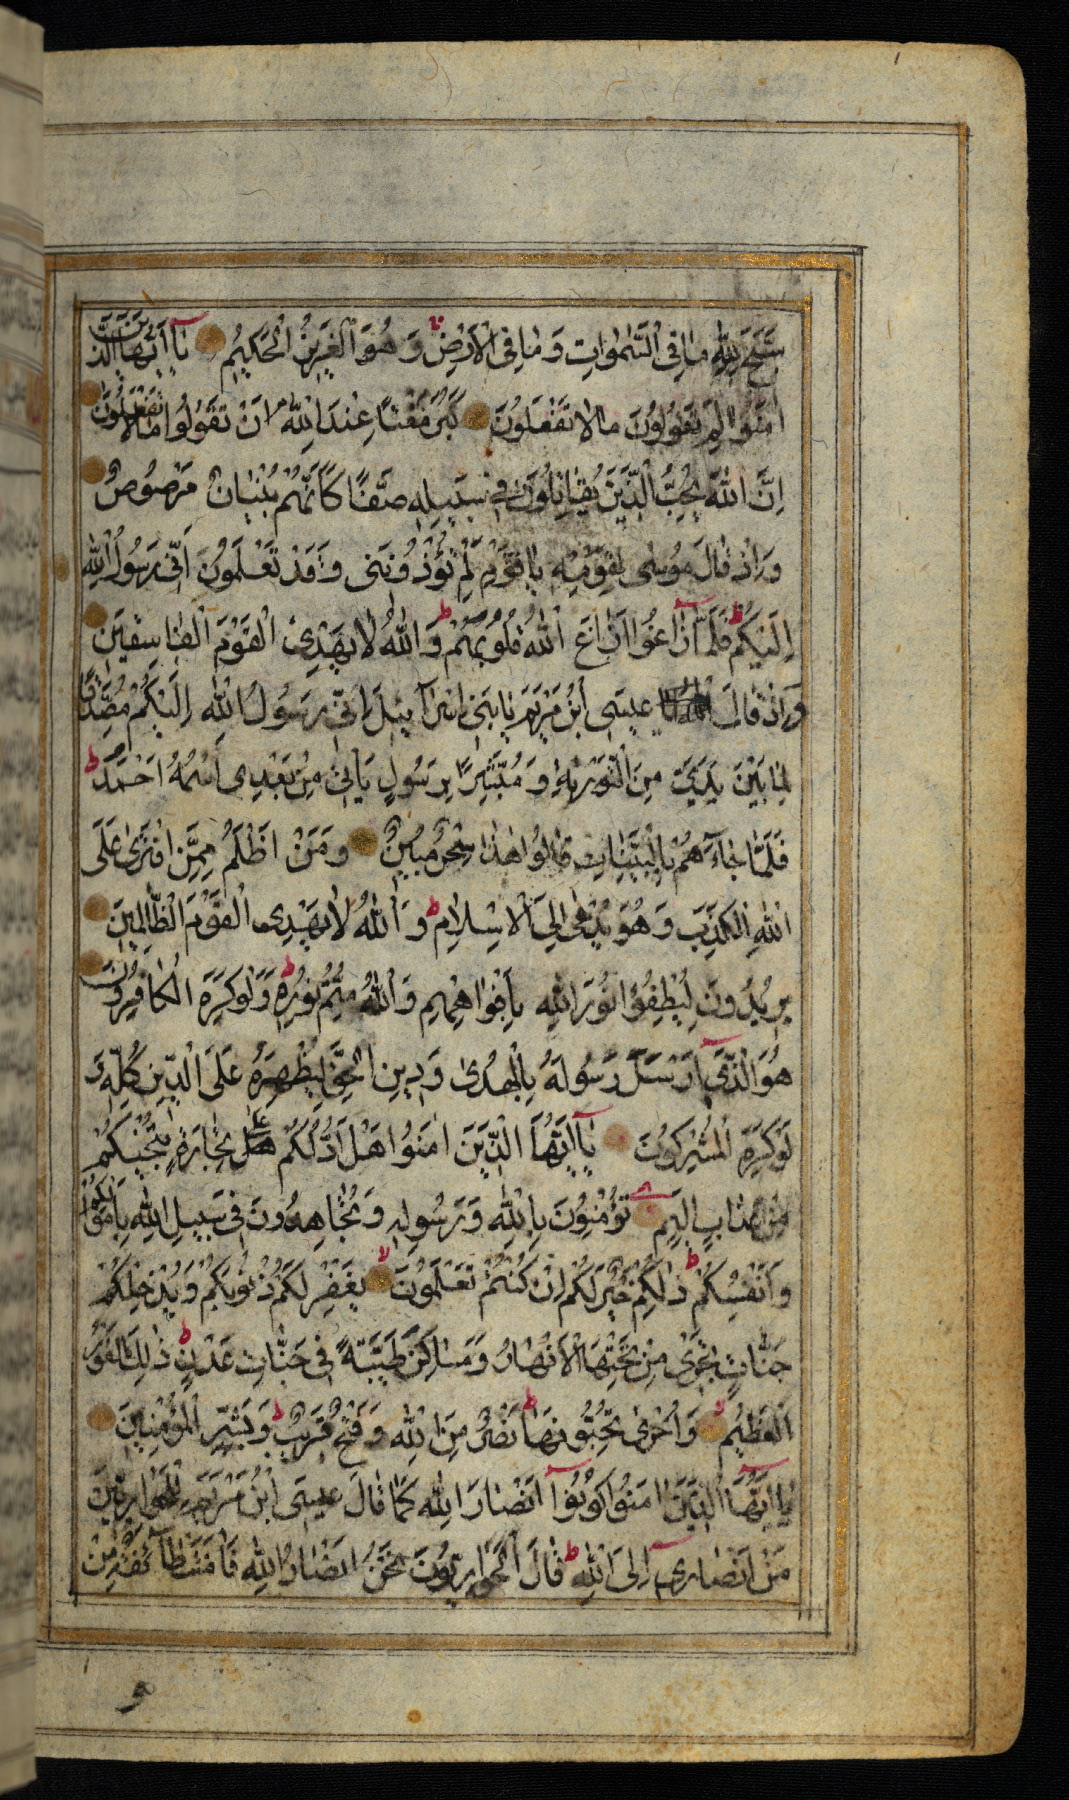 سَبَّحَ لِلّٰهِ مَا فِى السَّمٰوَاتِ وَمَا فِى الْاَرْضِ وَهُوَ الْعَزِيْزُ الْحَكِيْمُ يَآ اَيُّهَا الَّذِيْنَ
اٰمَنُوا لِمَ تَقُولُوْنَ مَا لَا تَفْعَلُوْنَ كَبُرَ مَقْتًا عِنْدَ اللّٰهِ اَنْ تَقُوْلُوا مَا لَا تَفْعَلُوْنَ
اِنَّ اللّٰهَ يُحِبُّ الَّذِيْنَ يُقَاتِلُوْنَ فِى سَبِيْلِهِ صَفًّا كَاَنَّهُمْ بُنْيَانٌ مَرْصُوْصٌ
وَاِذْ قَالَ مُوسٰى لِقَوْمِهِ يَا قَوْمِ لِمَ تُؤْذُوْنَنِى وَقَدْ تَعْلَمُوْنَ اَنِّى رَسُوْلُ اللّٰهِ
اِلَيْكُمْ فَلَمَّا زَاغُوآ اَزَاغَ اللّٰهُ قُلُوْبَهُمْ وَاللّٰهُ لَا يَهْدِى الْقَوْمَ الْفَاسِقِيْنَ
وَاِذْ قَالَ عِيْسَى ابْنُ مَرْيَمَ يَا بَنِى اِسْرَآئِيْلَ اِنِّى رَسُوْلُ اللّٰهِ اِلَيْكُمْ مُصَدِّقًا
لِمَا بَيْنَ يَدَيَّ مِنَ التَّوْرٰيةِ وَمُبَشِّرًا بِرَسُوْلٍ يَاْتِى مِنْ بَعْدِى اسْمُهُ اَحْمَدُ
فَلَمَّا جَآءَهُمْ بِالْبَيِّنَاتِ قَالُوْا هٰذَا سِحْرٌ مُبِيْنٌ وَمَنْ اَظْلَمُ مِمَّنِ افْتَرٰى عَلَى
اللّٰهِ الْكَذِبَ وَهُوَ يُدْعٰى اِلَى الْاِسْلَامِ وَاللّٰهُ لَا يَهْدِى الْقَوْمَ الظَّالِمِيْنَ
يُرِيْدُوْنَ لِيُطْفِؤُا نُوْرَ اللّٰهِ بِاَفْوَاهِهِمْ وَاللّٰهُ مُتِمُّ نُوْرِهِ وَلَوْ كَرِهَ الْكَافِرُوْنَ
هُوَ الَّذِىٓ اَرْسَلَ رَسُولَهُ بِالْهُدٰى وَدِيْنِ الْحَقِّ لِيُظْهِرَهُ عَلَى الدِّيْنِ كُلِّهِ وَ
لَوْ كَرِهَ الْمُشْرِكُوْنَ يَآ اَيُّهَا الَّذِيْنَ اٰمَنُوا هَلْ اَدُلُّكُمْ عَلٰى تِجَارَةٍ تُنْجِيْكُمْ
مِنْ عَذَابٍ اَلِيْمٍ تُؤْمِنُوْنَ بِاللّٰهِ وَرَسُولِهِ وَتُجَاهِدُوْنَ فِى سَبِيْلِ اللّٰهِ بِاَمْوَالِكُمْ
وَاَنْفُسِكُمْ ذٰلِكُمْ خَيْرٌ لَكُمْ اِنْ كُنْتُمْ تَعْلَمُوْنَ يَغْفِرْ لَكُمْ ذُنُوْبَكُمْ وَيُدْخِلْكُمْ
جَنَّاتٍ تَجْرِى مِنْ تَحْتِهَا الْاَنْهَارُ وَمَسَاكِنَ طَيِّبَةً فِى جَنَّاتِ عَدْنٍ ذٰلِكَ الْفَوْزُ
الْعَظِيْمُ وَاُخْرٰى تُحِبُّوْنَهَا نَصْرٌ مِنَ اللّٰهِ وَفَتْحٌ قَرِيْبٌ وَبَشِّرِ الْمُؤْمِنِيْنَ
يَآ اَيُّهَا الَّذِيْنَ اٰمَنُوا كُوْنُوآ اَنْصَارَ اللّٰهِ كَمَا قَالَ عِيْسَى ابْنُ مَرْيَمَ لِلْحَوَارِيِّيْنَ
مَنْ اَنْصَارِىٓ اِلَى اللّٰهِ قَالَ الْحَوَارِيُّوْنَ نَحْنُ اَنْصَارُ اللّٰهِ فَاٰمَنَتْ طَآئِفَةٌ مِنْ